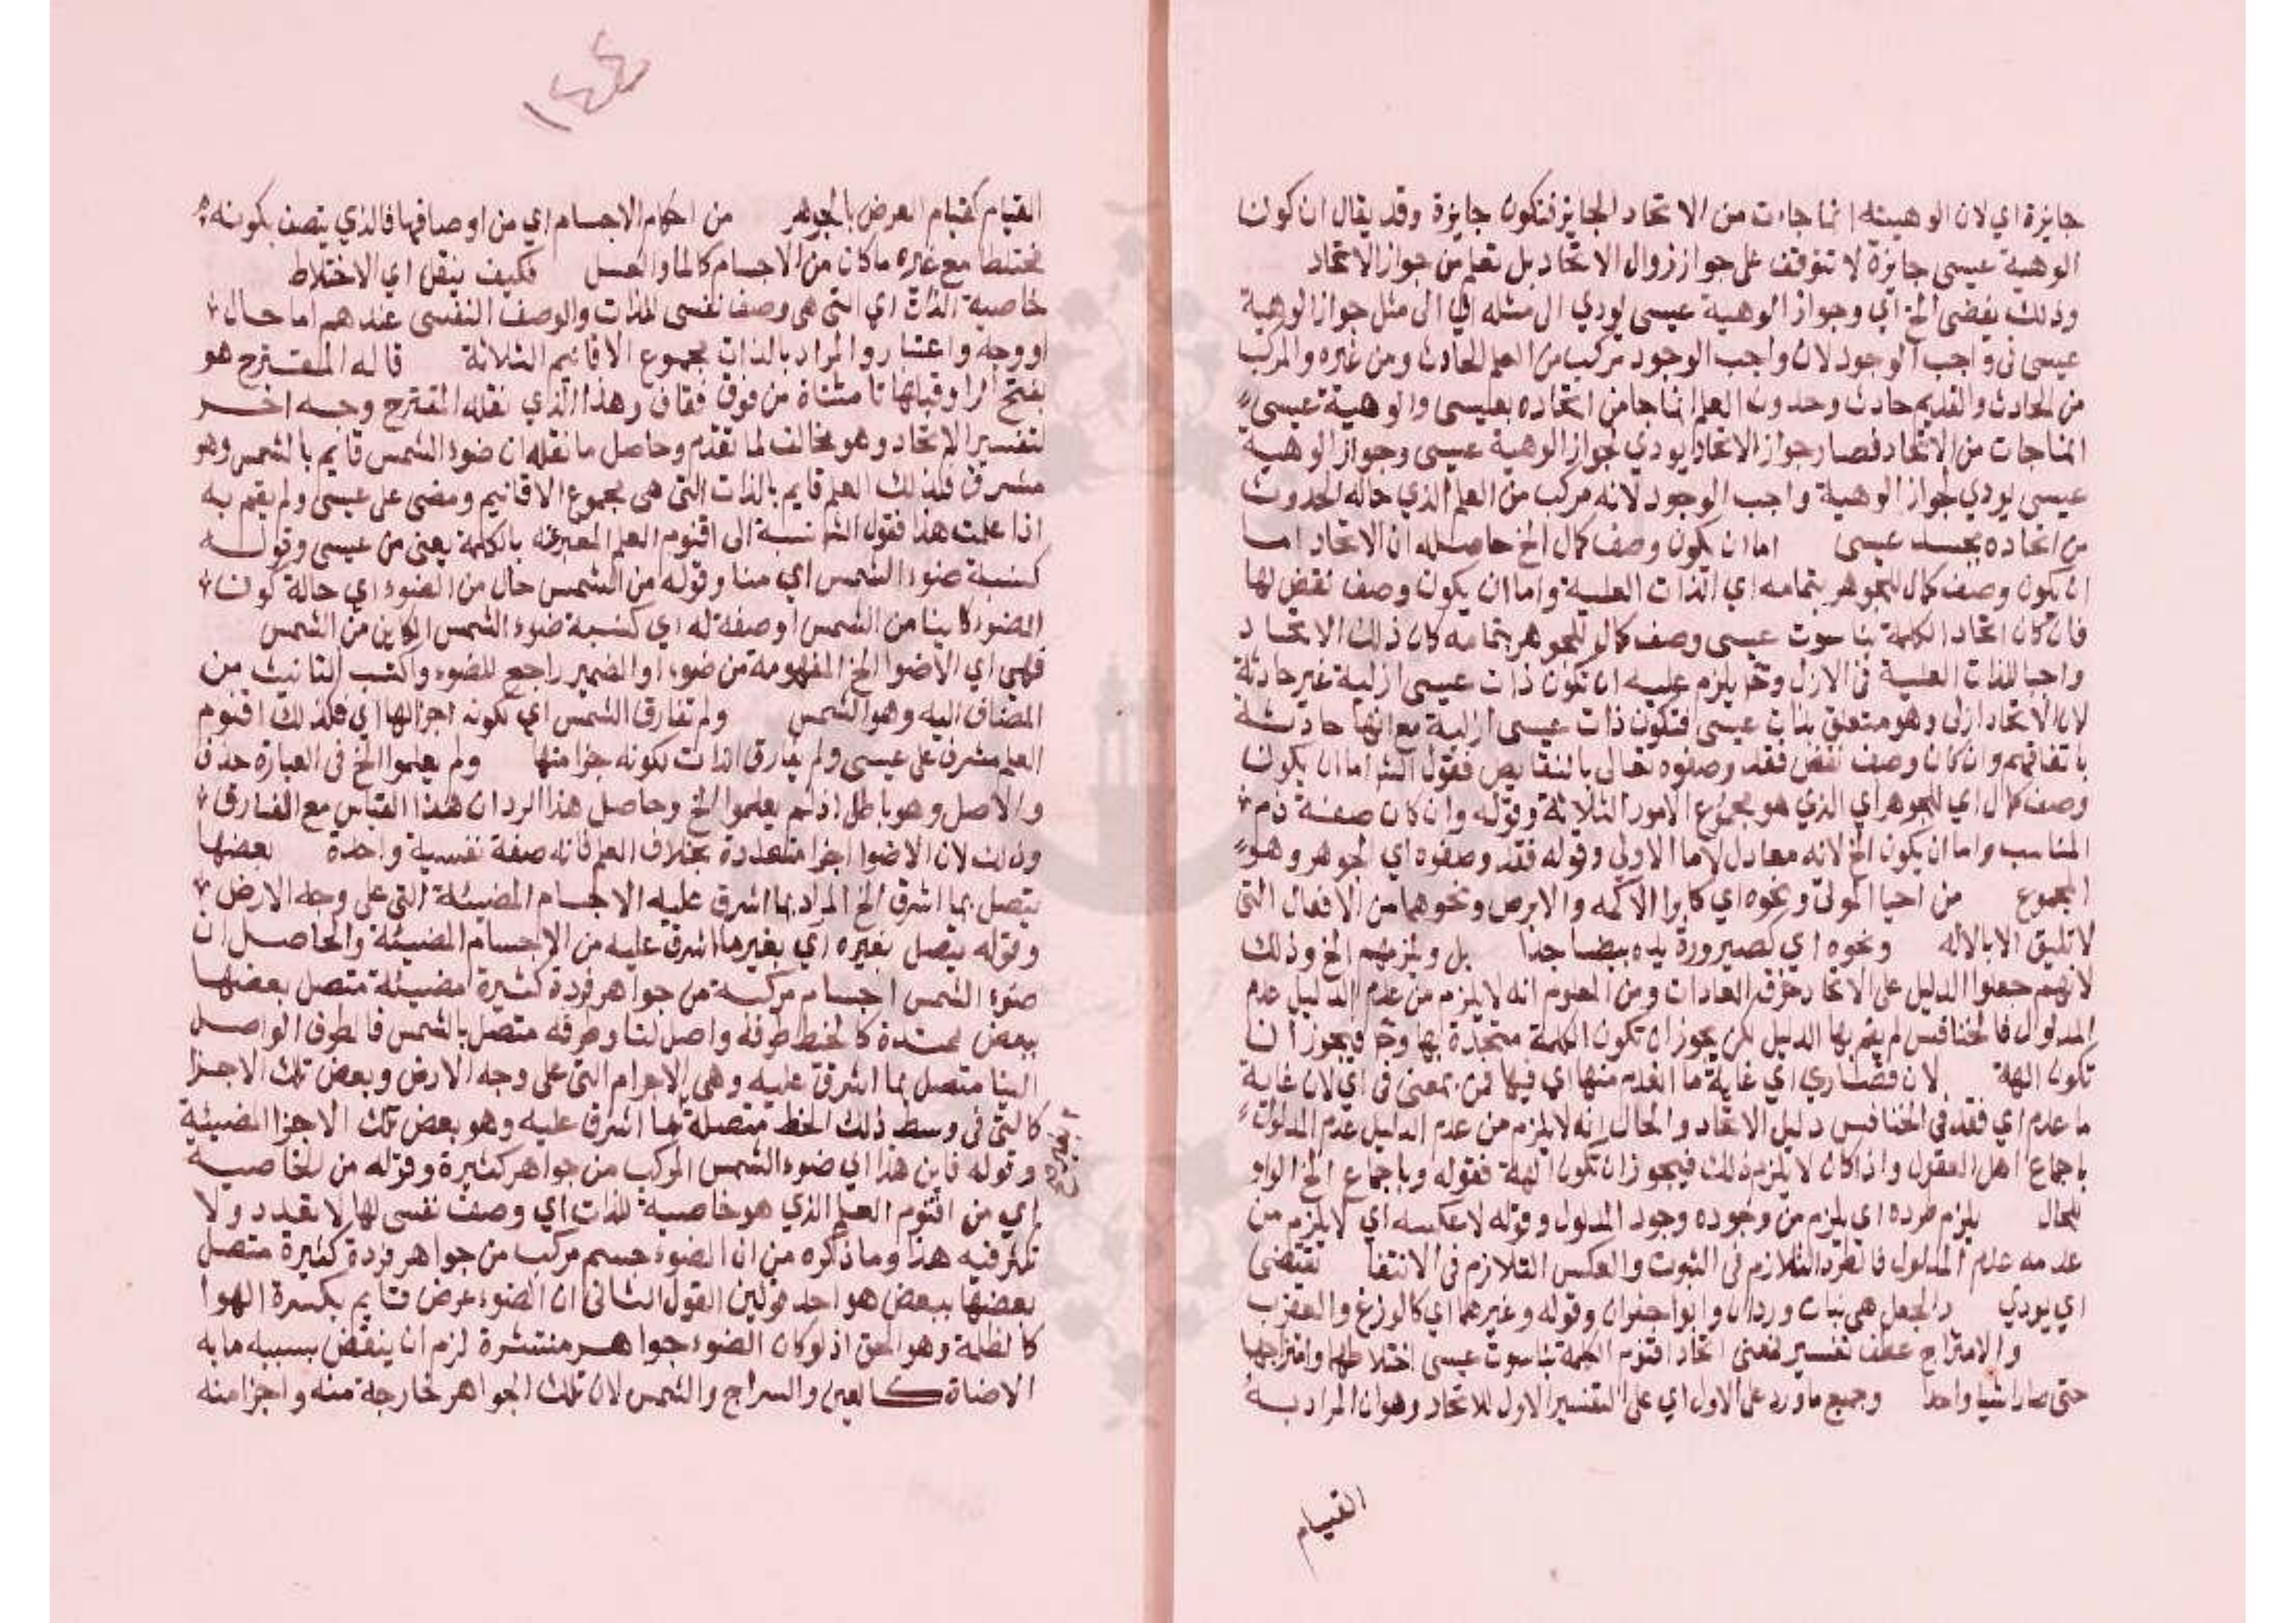 جايزة اي لان الوهيته انما جاءت من الاتحاد الجايز فتكون جايزة وقد يقال ان كون
الوهية عيسى جايزة لا تتوقف على جواز زوال الاتحاد بل تعلم من جواز الاتحاد
وذلك يفضى الخ اي وجواز الوهية عيسى يودي الى مثله اي الى مثل جواز الوهية
عيسى في واجب الوجود لان واجب الوجود مركب من العلم الحادث ومن غيره والمركب
من الحادث والقديم حادث وحدوث العلم انما جا من اتحاده بعيسى والوهية عيسى
انما جات من الاتحاد فصار جواز الاتحاد يودي لجواز الوهية عيسى وجواز الوهية
عيسى يودي لجواز الوهية واجب الوجود لانه مركب من العلم الذي حاله الحدوث
من اتحاده بجسد عيسى اما ان يكون وصف كمال الخ حاصله ان الاتحاد اما
ان يكون وصف كمال للجوهر بتمامه اي الذات العلية واما ان يكون وصف نقص لها
فان كان اتحاد الكلمة بناسوت عيسى وصف كمال للجوهر بتمامه كان ذلك الاتحاد
واجبا للذات العلية في الازل وح يلزم عليه ان تكون ذات عيسى ازلية غير حادثة
لان الاتحاد ازلي وهو متعلق بذات عيسى فتكون ذات عيسى ازلية مع انها حادثة
باتفاقهم وان كان وصف نقص فقد وصفوه تعالى بالنقايص فقول الش اما ان يكون
وصف كمال اي للجوهر اي الذي هو مجموع الامور الثلاثة وقوله وان كان صفة ذم
المناسب واما ان يكون الخ لانه معادل لاما الاولى وقوله فقد وصفوه اي الجوهر وهو
المجموع من احيا الموتى ونحوه اي كابرا الاكمه والابرص ونحوهما من الافعال التي
لا تليق الا بالاله ونحوه اي كصيرورة يده بيضا جدا بل ويلزمهم الخ وذلك
لانهم جعلوا الدليل على الاتحاد خرق العادات ومن المعلوم انه لا يلزم من عدم الدليل عدم
المدلول فالخنافس لم يقم بها الدليل لكن يجوز ان تكون الكلمة متحدة بها وح فيجوز ان
تكون الهة لان قصارى اي غاية ما انعدم منها اي فيها فمن بمعنى في اي لان غاية
ما عدم اي فقد في الخنافس دليل الاتحاد والحال انه لا يلزم من عدم الدليل عدم المدلول
باجماع اهل العقول واذا كان لا يلزم ذلك فيجوز ان تكون الهة فقوله وباجماع الخ الواو
للحال يلزم طرده اي يلزم من وجوده وجود المدلول وقوله لا عكسه اي لا يلزم من
عدمه عدم المدلول فالطرد التلازم في الثبوت والعكس التلازم في الانتفا تقتضى
اي يودي والجعل هي بنات وردان وابو جعران وقوله وغيرهما اي كالوزغ والعقرب
والامتزاج عطف تفسير فمعنى اتحاد اقنوم الكلمة بناسوت عيسى اختلاطها وامتزاجها
حتى صارا شيا واحدا وجميع ما ورد على الاول اي على التفسير الاول للاتحاد وهو ان المراد به
القيام
١٤٤
القيام كقيام العرض بالجوهر من احكام الاجسام اي من اوصافها فالذي يتصف بكونه
مختلطا مع غيره ما كان من الاجسام كالما والعسل فكيف ينقل اي الاختلاط
خاصية الذات اي التي هي وصف نفسى للذات والوصف النفسى عندهم اما حال
او وجه واعتبار والمراد بالذات مجموع الاقانيم الثلاثة قاله المقترح هو
بفتح الرا وقبلها تا مثناة من فوق فقاف وهذا الذي نقله المقترح وجه اخر
لتفسير الاتحاد وهو مخالف لما تقدم وحاصل ما نقله ان ضوء الشمس قايم بالشمس وهو
مشرق فكذلك العلم قايم بالذات التي هي مجموع الاقانيم ومضى على عيسى ولم يقم به
اذا علمت هذا فقول الش نسبة الى اقنوم العلم المعبر عنه بالكلمة يعنى من عيسى وقوله
كنسبة ضوء الشمس اي منا وقوله من الشمس حال من الضوء اي حالة كون
الضوء كاينا من الشمس او صفة له اي كنسبة ضوء الشمس الكاين من الشمس
فهي اي الاضوا الخ المفهومة من ضوء او الضمير راجع للضوء واكتسب التانيث من
المضاف اليه وهو الشمس ولم تفارق الشمس اي لكونه اجزا لها اي فكذلك اقنوم
العلم مشرق على عيسى ولم يفارق الذات لكونه جزا منها ولم يعلموا الخ في العبارة حذف
والاصل وهو باطل اذ لم يعلموا الخ وحاصل هذا الرد ان هذا القياس مع الفارق
وذلك لان الاضوا اجزا متعددة بخلاف العلم فانه صفة نفسية واحدة بعضها
يتصل بما اشرق الخ المراد بما اشرق عليه الاجسام المضيئة التي على وجه الارض
وقوله يتصل بغيره اي بغير ما اشرق عليه من الاجسام المضيئة والحاصل ان
ضوء الشمس اجسام مركبة من جواهر فردة كثيرة مضيئة متصل بعضها
ببعض ممتدة كالخيط طرفه واصل لنا وطرفه متصل بالشمس فالطرف الواصل
الينا متصل بما اشرق عليه وهي الاجرام التي على وجه الارض وبعض تلك الاجزا
كالتي في وسط ذلك الخط متصلة بما اشرق عليه وهو بعض تلك الاجزا المضيئة
وقوله فاين هذا اي ضوء الشمس المركب من جواهر كثيرة وقوله من الخاصية
اي من اقنوم العلم الذي هو خاصية للذات اي وصف نفسى لها لا تعدد ولا
تكثر فيه هذا وما ذكره من ان الضوء جسم مركب من جواهر فردة كثيرة متصل
بعضها ببعض هو احد قولين القول الثاني ان الضوء عرض قايم بكسرة الهوا
كالظلمة وهو الحق اذ لو كان الضوء جواهر منتشرة لزم ان ينقص بسببه ما به
الاضاة كالعين والسراج والشمس لان تلك الجواهر خارجة منه واجزا منه